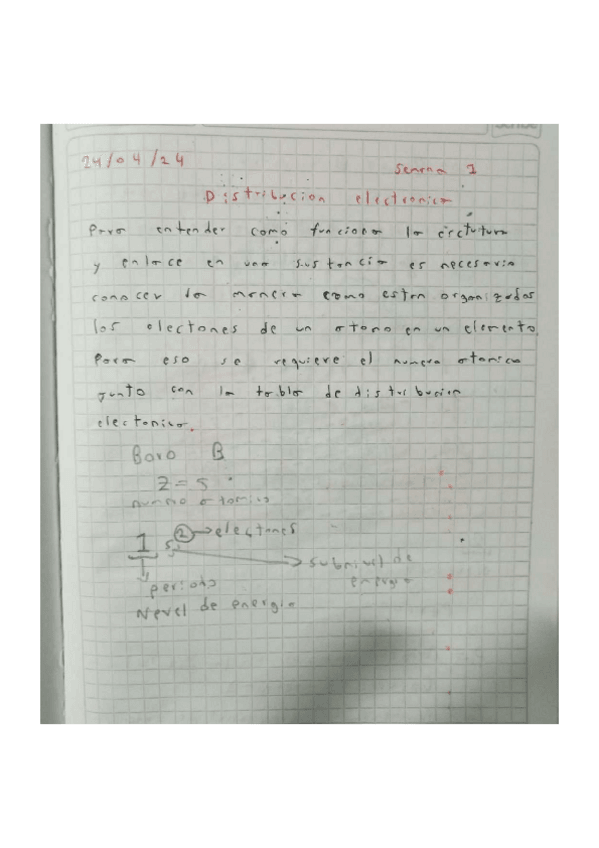 24/04/24
Semana 1
Distribucion electronica
Para entender como funciona la
y enlace en una sustancia es necesaria
conocer la manera como estan organizados
los electones de un atomo en un elemento.
Para eso se requiere el numera atomico
junto con la tabla de distribucion
electonica.
Boro B
Z = 5
numero atomico
2 → electones
1 s → subnivel de
energia
periodo
Nevel de energia